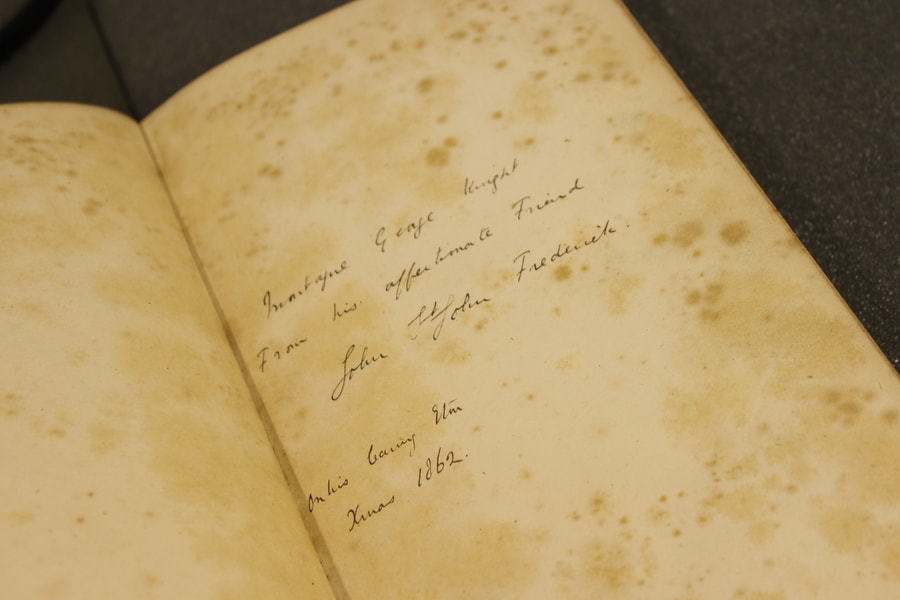 Montague George Knight
From his affectionate Friend
John St John Frederick.
On his leaving Eton
Xmas 1862.